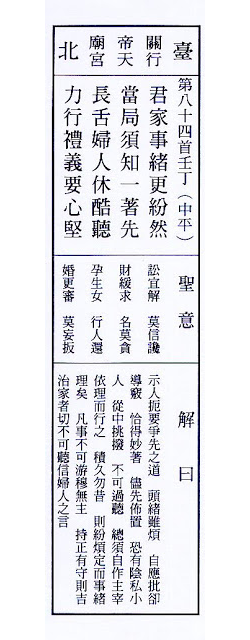 臺北
關帝廟
行天宮
第八十四首壬丁(中平)
君家事緒更紛然
當局須知一著先
長舌婦人休酷聽
力行禮義要心堅
聖意
訟宜解 莫信讒
財緩求 名莫貪
孕生女 行人還
婚更審 莫妄扳
解曰
示人扼要爭先之道 頭緒雖煩 自應批卻
導竅 恰得妙著 儘先佈置 恐有陰私小
人 從中挑撥 不可過聽 總須自作主宰
依理而行之 積久勿昔 則紛煩定而事緒
理矣 凡事不可游穆無主 持正有守則吉
治家者切不可聽信婦人之言